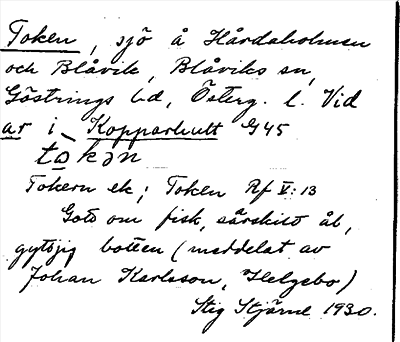 Token, sjö å Hårdaholmen
och Blåvik, Blåviks sn,
Göstrings hd, Österg. l. Vid
ar i Kopparhult G45
tɷ̀kən
Tokern ek; Token Rf V:13
Gott om fisk, särskilt ål,
gyttjig botten (meddelat av
Johan Karlsson, Helgebo)
Stig Stjärne 1930.